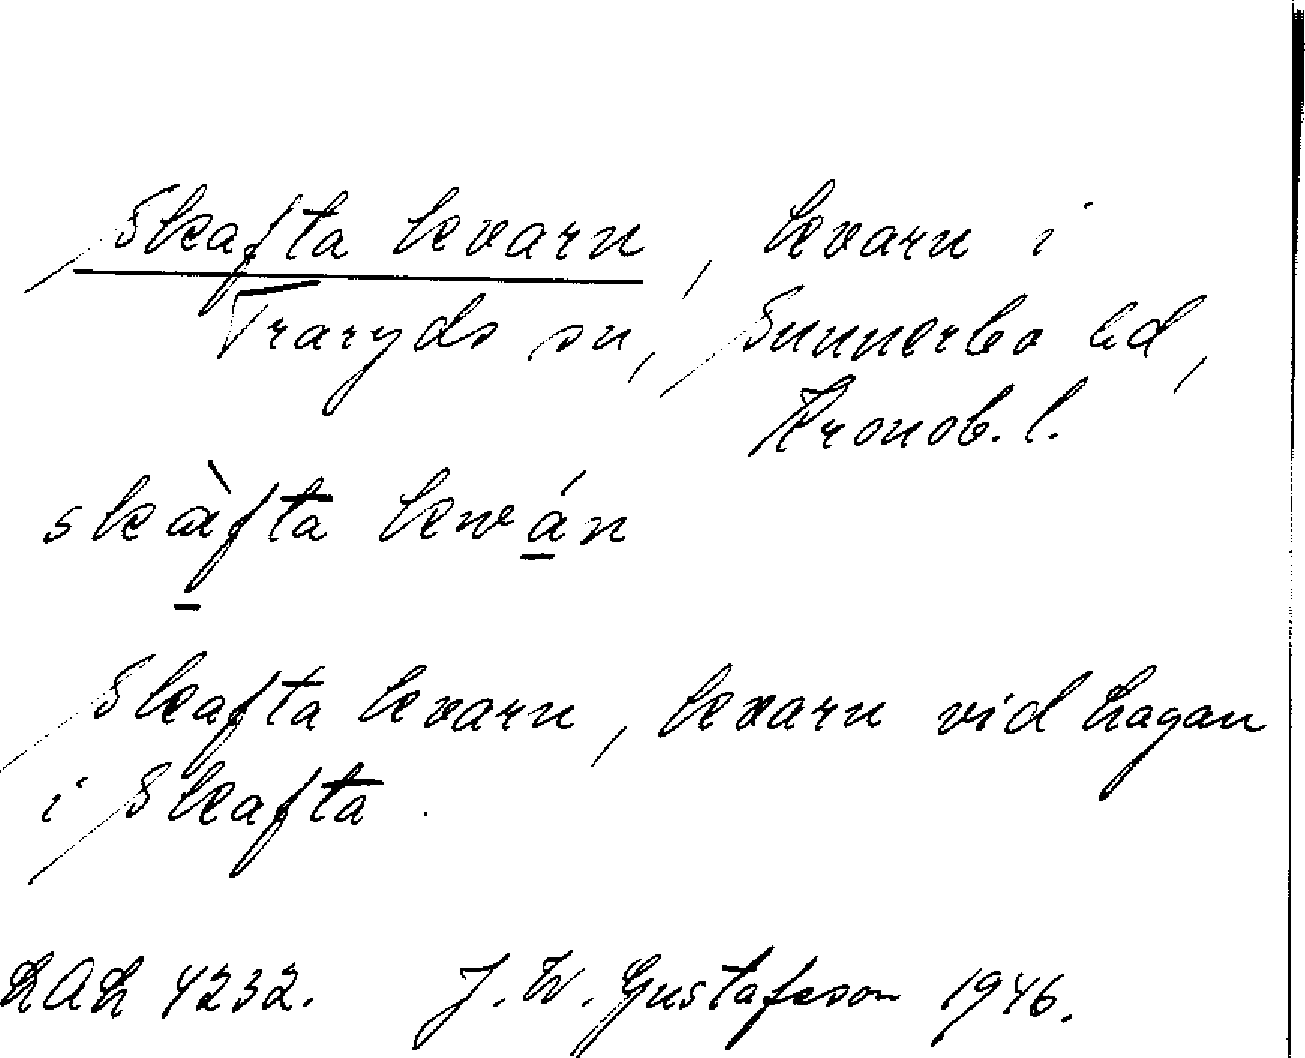 Skafta kvarn, kvarn i
Traryds sn, Sunnerbo hd,
Kronob. l.
skàfta kwán
Skafta kvarn, kvarn vid Lagan
i Skafta.
LAL 4232. J. W. Gustafsson 1946.